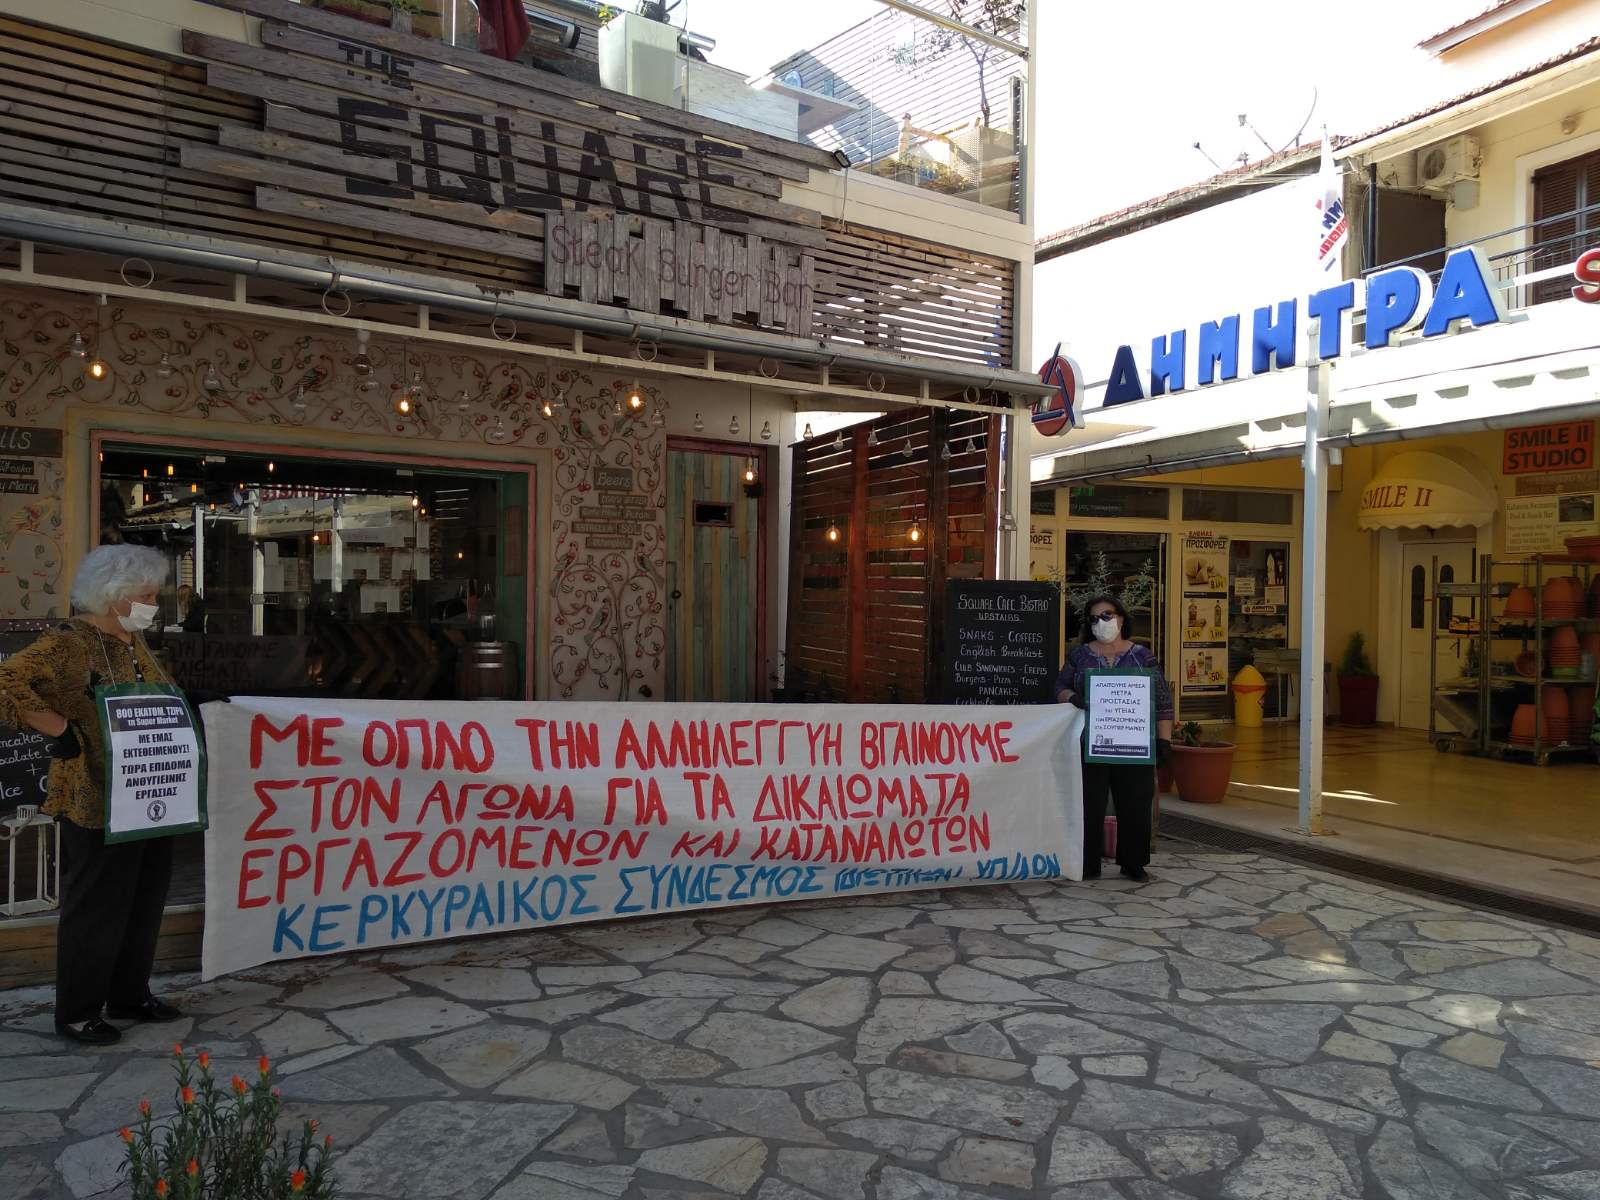 THE
SQUARE
Steak Burger Bar
ΔΗΜΗΤΡΑ
SMILE II
STUDIO
SMILE II
Beers
ΠΡΟΣΦΟΡΕΣ
SQUARE CAFE BISTRO
UPSTAIRS
SNAKS - COFFEES
English Breakfast
CLUB SANDWICHES - CREPES
BURGERS - PIZZA - TOST
PANCAKES
800 ΕΚΑΤΟΜ. ΤΖΙΡΟ
τα Super Market
ΜΕ ΕΜΑΣ
ΕΚΤΕΘΕΙΜΕΝΟΥΣ!
ΤΩΡΑ ΕΠΙΔΟΜΑ
ΑΝΘΥΓΙΕΙΝΗΣ
ΕΡΓΑΣΙΑΣ
ΜΕ ΟΠΛΟ ΤΗΝ ΑΛΛΗΛΕΓΓΥΗ ΒΓΑΙΝΟΥΜΕ
ΣΤΟΝ ΑΓΩΝΑ ΓΙΑ ΤΑ ΔΙΚΑΙΩΜΑΤΑ
ΕΡΓΑΖΟΜΕΝΩΝ ΚΑΙ ΚΑΤΑΝΑΛΩΤΩΝ
ΚΕΡΚΥΡΑΙΚΟΣ ΣΥΝΔΕΣΜΟΣ ΙΔΙΩΤΙΚΩΝ ΥΠ/ΛΩΝ
ΑΠΑΙΤΟΥΜΕ ΑΜΕΣΑ
ΜΕΤΡΑ
ΠΡΟΣΤΑΣΙΑΣ
ΤΗΣ ΥΓΕΙΑΣ
ΤΩΝ ΕΡΓΑΖΟΜΕΝΩΝ
ΣΤΑ ΣΟΥΠΕΡ ΜΑΡΚΕΤ